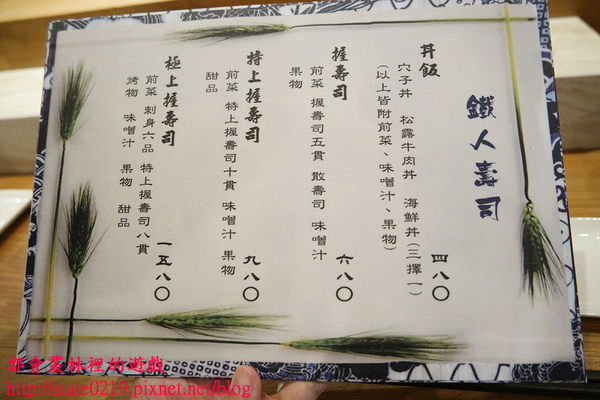 鐵人壽司
丼飯
穴子丼 松露牛肉丼 海鮮丼(三擇一) 四八〇
(以上皆附前菜、味噌汁、果物)
握壽司
前菜 握壽司五貫 散壽司 味噌汁 六八〇
果物
特上握壽司
前菜 特上握壽司十貫 味噌汁 果物 九八〇
甜品
極上握壽司
前菜 刺身六品 特上握壽司八貫 一五八〇
烤物 味噌汁 果物 甜品
都會叢林裡的遊戲
http://stare0219.pixnet.net/blog